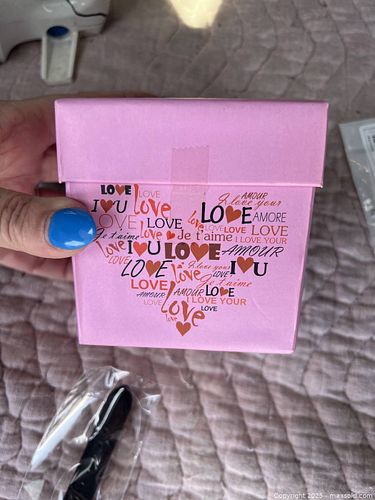 LOVE LOVE AMOUR
I ♥ U love I love your
LOVE I LOVE love LOVE AMORE
Je t'aime love ♥ Je t'aime LOVE LOVE
love I ♥ U LOVE AMOUR I LOVE YOUR
LOVE LOVE love I love your I ♥ U
LOVE LOVE Je t'aime
AMOUR AMOUR LOVE
LOVE love I LOVE YOUR
love LOVE
Copyright 2025 - maxsold.com